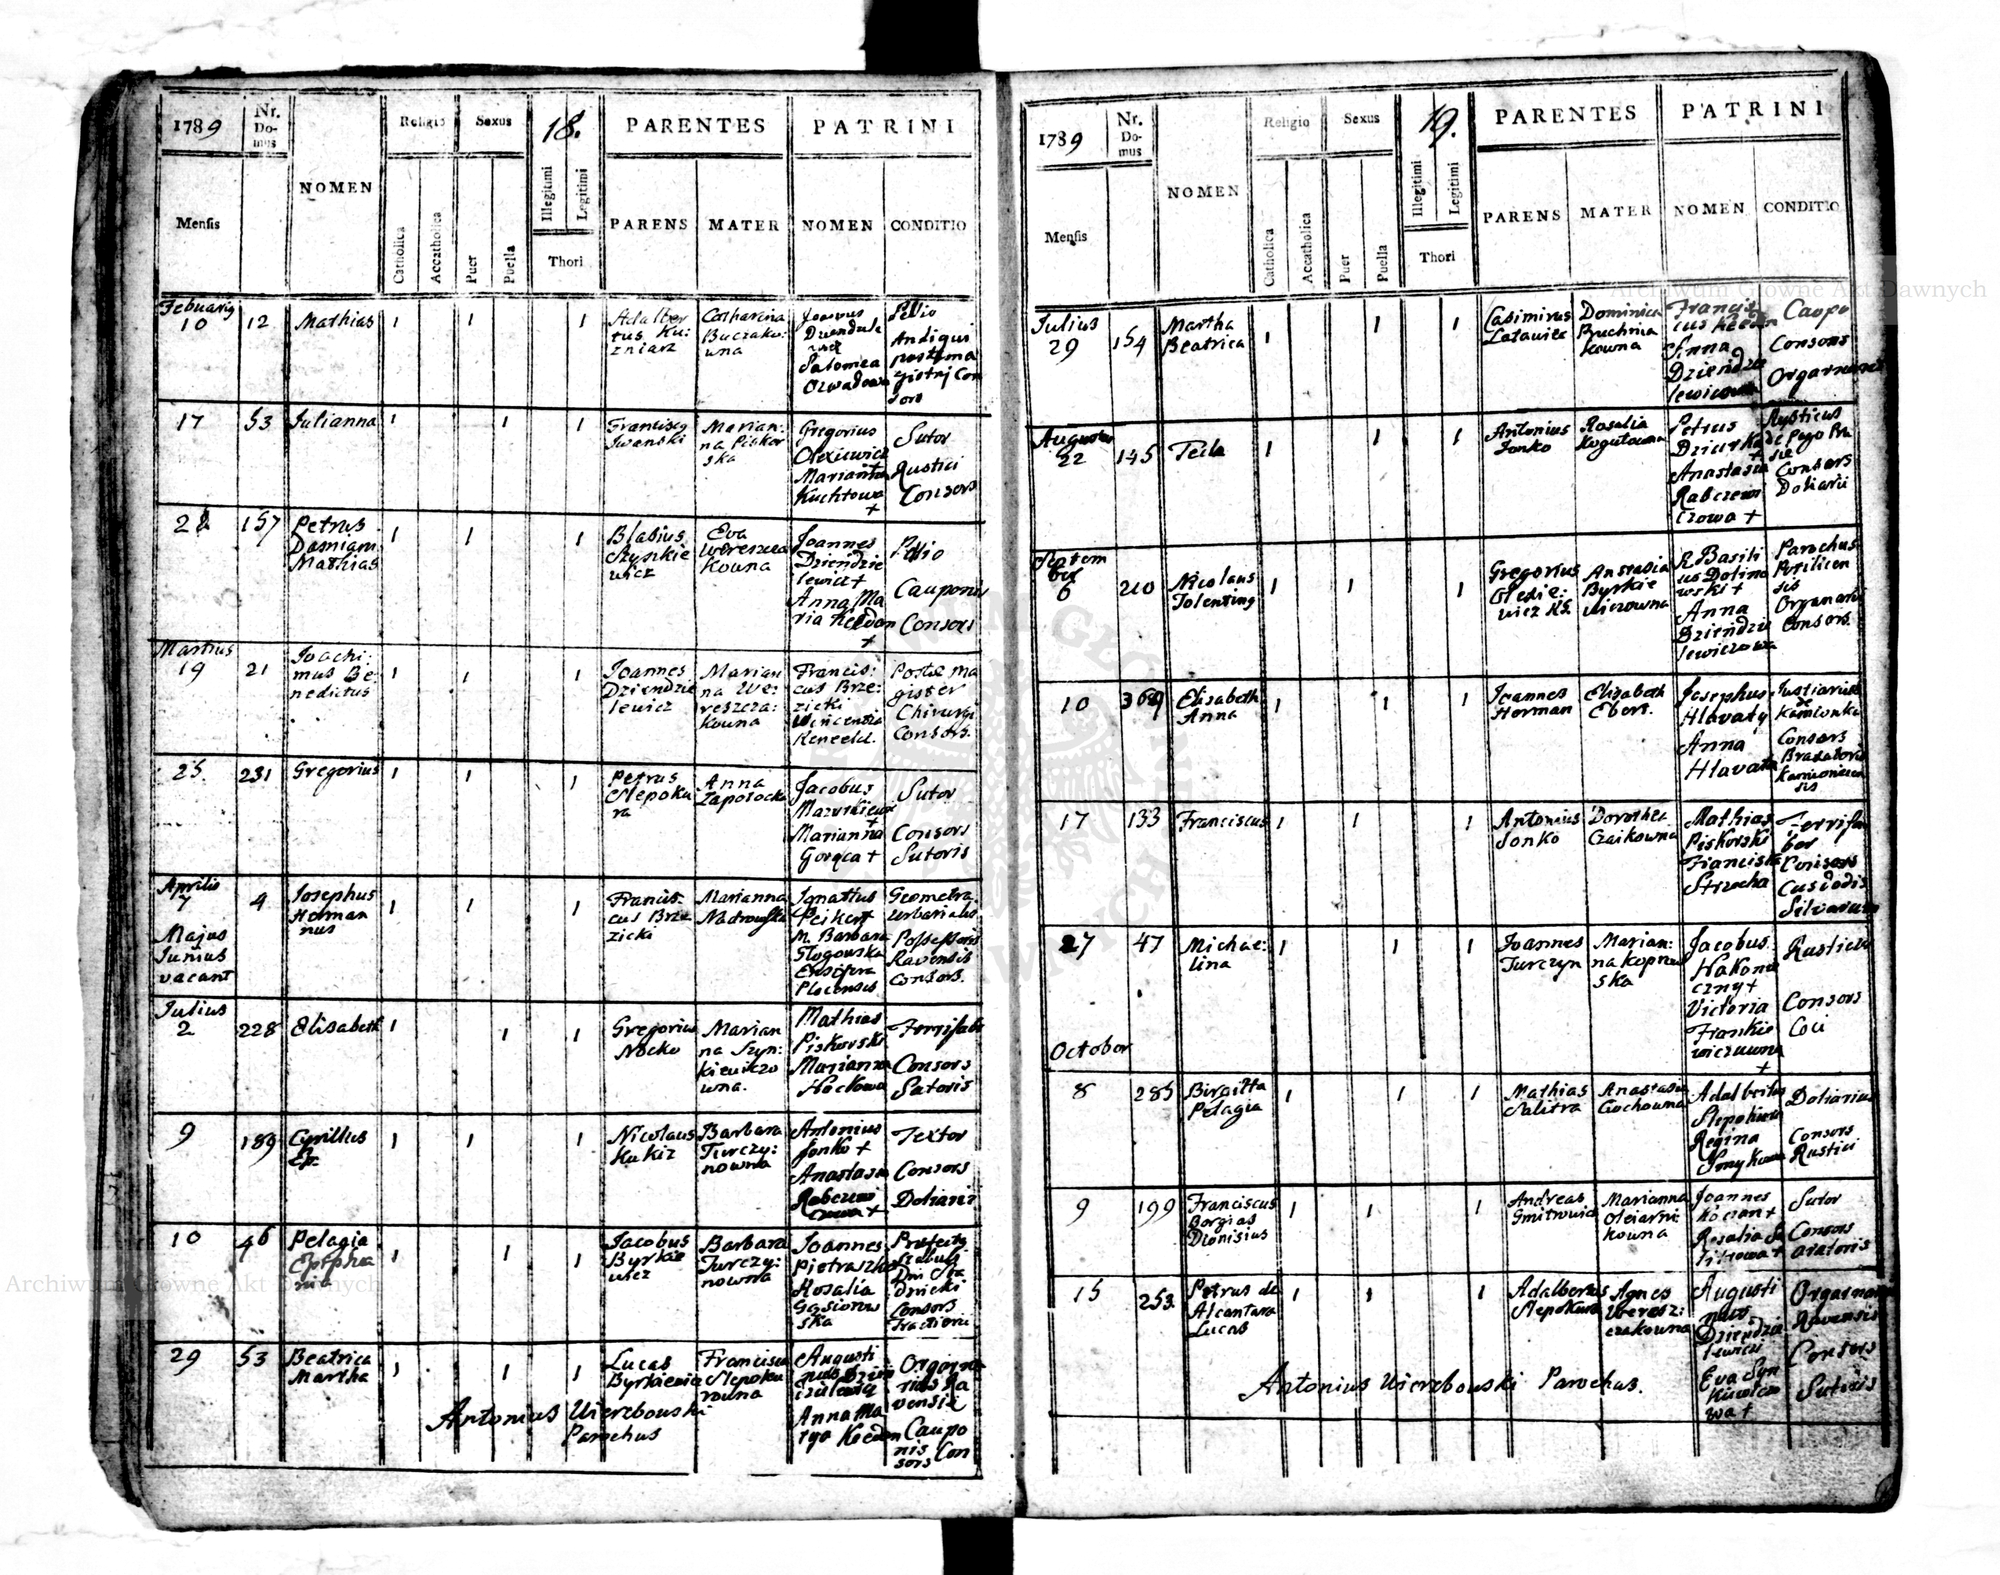 1789
Nr.
Do-
mus
NOMEN
Religio
Sexus
18.
PARENTES
PATRINI
Mensis
Catholica
Accatholica
Puer
Puella
Illegitimi
Legitimi
Thori
PARENS
MATER
NOMEN
CONDITIO
Februarij
10
12
Mathias
1
1
1
Adalber
tus Ku
zniarz
Catharina
Buczako:
wna
Joannes
Salomea
Pellio
17
53
Julianna
1
1
1
Franciscg
Iwanski
Marian:
na Piskor
ska
Gregorius
Olexiewicz
Marianna
Kuchtowa
+
Sutor
Rustici
Consors
28
157
Petrus
Damiam
Mathias
1
1
1
Blasius
Szyszkie
wicz
Eva
Wereszcza
kowna
Joannes
Dziendzie
lewicz +
Anna Ma
ria Keedan
+
Pellio
Cauponis
Consors
Martius
19
21
Joachi:
mus Be:
nedictus
1
1
1
Joannes
Dziendzie
lewicz
Marian
na We:
reszcza:
kowna
Francis:
cus Brze:
zicki
Wincentia
Keneeld.
Postæ ma
gister
Chirurgi
Consors.
25.
231
Gregorius
1
1
1
Petrus
Slepoku
ra
Anna
Zaporocka
Jacobus
Mazurkiewicz
+
Marianna
Gorąca +
Sutor
Consors
Sutoris
Aprilis
7
4
Josephus
Herman
nus
1
1
1
Francis:
cus Brze
zicki
Marianna
Nadrowska
Ignatius
Peikert
M. Barbara
Glogowska
Ensifera
Plocensis
Geometra
Urbarialis.
Possessoris
Ravensis
Consors.
Majus
Junius
vacant
Julius
2
228
Elisabeth
1
1
1
Gregorius
Nocko
Marian
na Szyn:
kiewiczo
wna.
Mathias
Piskorski
Marianna
Hockowa
Ferrifab
Consors
Satoris
9
189
Cyrillus
Ep.
1
1
1
Nicolaus
Kukiz
Barbara
Turczy:
nowna
Antonius
Jonko +
Anastasia
Rabczewi
czowa +
Textor
Consors
Doliarii
10
46
Pelagia
Epipha
nia
1
1
1
Jacobus
Byrkie
wicz
Barbara
Turczy:
nowna
Joannes
Pietraszko
Rosalia
Gąsiorow
ska
Prefectg
Stabuli
Dni Sta
dnicki
Consors
Tractierii
29
53
Beatrica
Martha
1
1
1
Lucas
Byrkiewicz
Francisca
Slepoku
rowna
Augusti
nus Dzien
dzielewicz
Anna Ma
rya Keedan
Organa
rius Ra
vensis
Caupo
nis Con
sors
Antonius Wierzbowski
Parochus
1789
Nr.
Do-
mus
NOMEN
Religio
Sexus
19.
PARENTES
PATRINI
Mensis
Catholica
Accatholica
Puer
Puella
Illegitimi
Legitimi
Thori
PARENS
MATER
NOMEN
CONDITIO
Julius
29
154
Martha
Beatrica
1
1
1
Casimirus
Latawiec
Dominica
Buchnia
kowna
Francis
cus Keedan
Anna
Dziendzie
lewiczowa
Caupo
Consors
Organarii
Augustus
22
145
Tecla
1
1
1
Antonius
Jonko
Rosalia
Kogutowna
Petrus
Dziurka
+
Anastasia
Rabczewi
czowa +
Rusticus
Consors
Doliarii
Septem
ber
6
210
Nicolaus
Tolenting
1
1
1
Gregorius
Olexie:
wicz
Anstasia
Byrkie
wiczowna
R. Basili
us Dolino
wski +
Anna
Dziendzie
lewiczowa
Parochus
Organarii
Consors.
10
369
Elisabeth
Anna
1
1
1
Joannes
Herman
Elizabeth
Ebert.
Josephus
Hlavaty
Anna
Hlavata
de
Kamionka
Consors
17
133
Franciscus
1
1
1
Antonius
Jonko
Dorothea
Czaikowna
Mathias
Piskorski
Francisca
Strzecha
Ferrifa
ber
Consors
Custodis
Silvarum
27
47
Michae:
lina
1
1
1
Joannes
Turczyn
Marian:
na Koprow
ska
Jacobus
Hakone
czny +
Victoria
Frankie
wiczowna
+
Rusticus
Consors
Coci
October
8
285
Birgitta
Pelagia
1
1
1
Mathias
Salitra
Anastasia
Cochowna
Adalbertus
Slepokura
Regina
Smykowa
Doliarius
Consors
Rustici
9
199
Franciscus
Borgias
Dionisius
1
1
1
Andreas
Gmitrowicz
Marianna
Oleiarni
kowna
Joannes
Koczan +
Rosalia
Sutor
Consors
aratoris
15
253.
Petrus de
Alcantara
Lucas
1
1
1
Adalbertus
Slepokura
Agnes
Weresz:
czakowna
Augusti
nus
Dziendzie
lewicz
Eva Syn
kiewiczo
wa +
Organarius
Ravensis
Consors
Sutoris
Antonius Wierzbowski Parochus.
Archiwum Główne Akt Dawnych
Archiwum Główne Akt Dawnych